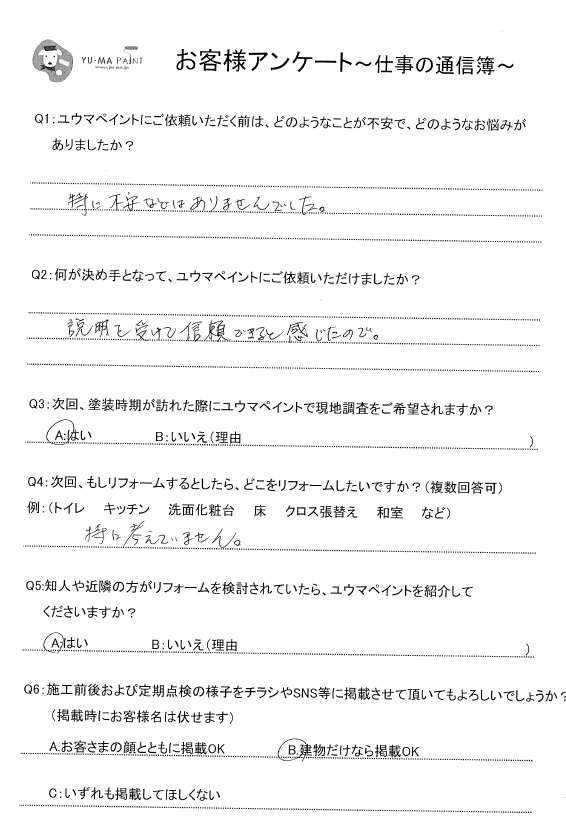 YU-MA PAINT
www.yu-ma.jp
お客様アンケート～仕事の通信簿～
Q1:ユウマペイントにご依頼いただく前は、どのようなことが不安で、どのようなお悩みが
ありましたか？
特に不安などはありませんでした。
Q2:何が決め手となって、ユウマペイントにご依頼いただけましたか？
説明を受けて信頼できると感じたので。
Q3:次回、塗装時期が訪れた際にユウマペイントで現地調査をご希望されますか？
A:はい B:いいえ(理由 )
Q4:次回、もしリフォームするとしたら、どこをリフォームしたいですか？(複数回答可)
例:(トイレ キッチン 洗面化粧台 床 クロス張替え 和室 など)
特に考えていません。
Q5:知人や近隣の方がリフォームを検討されていたら、ユウマペイントを紹介して
くださいますか？
A:はい B:いいえ(理由 )
Q6:施工前後および定期点検の様子をチラシやSNS等に掲載させて頂いてもよろしいでしょうか？
(掲載時にお客様名は伏せます)
A.お客さまの顔とともに掲載OK B.建物だけなら掲載OK
C:いずれも掲載してほしくない